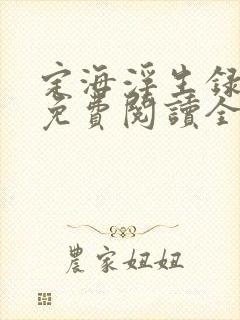 定海浮生録
免費閱讀全
農家妞妞